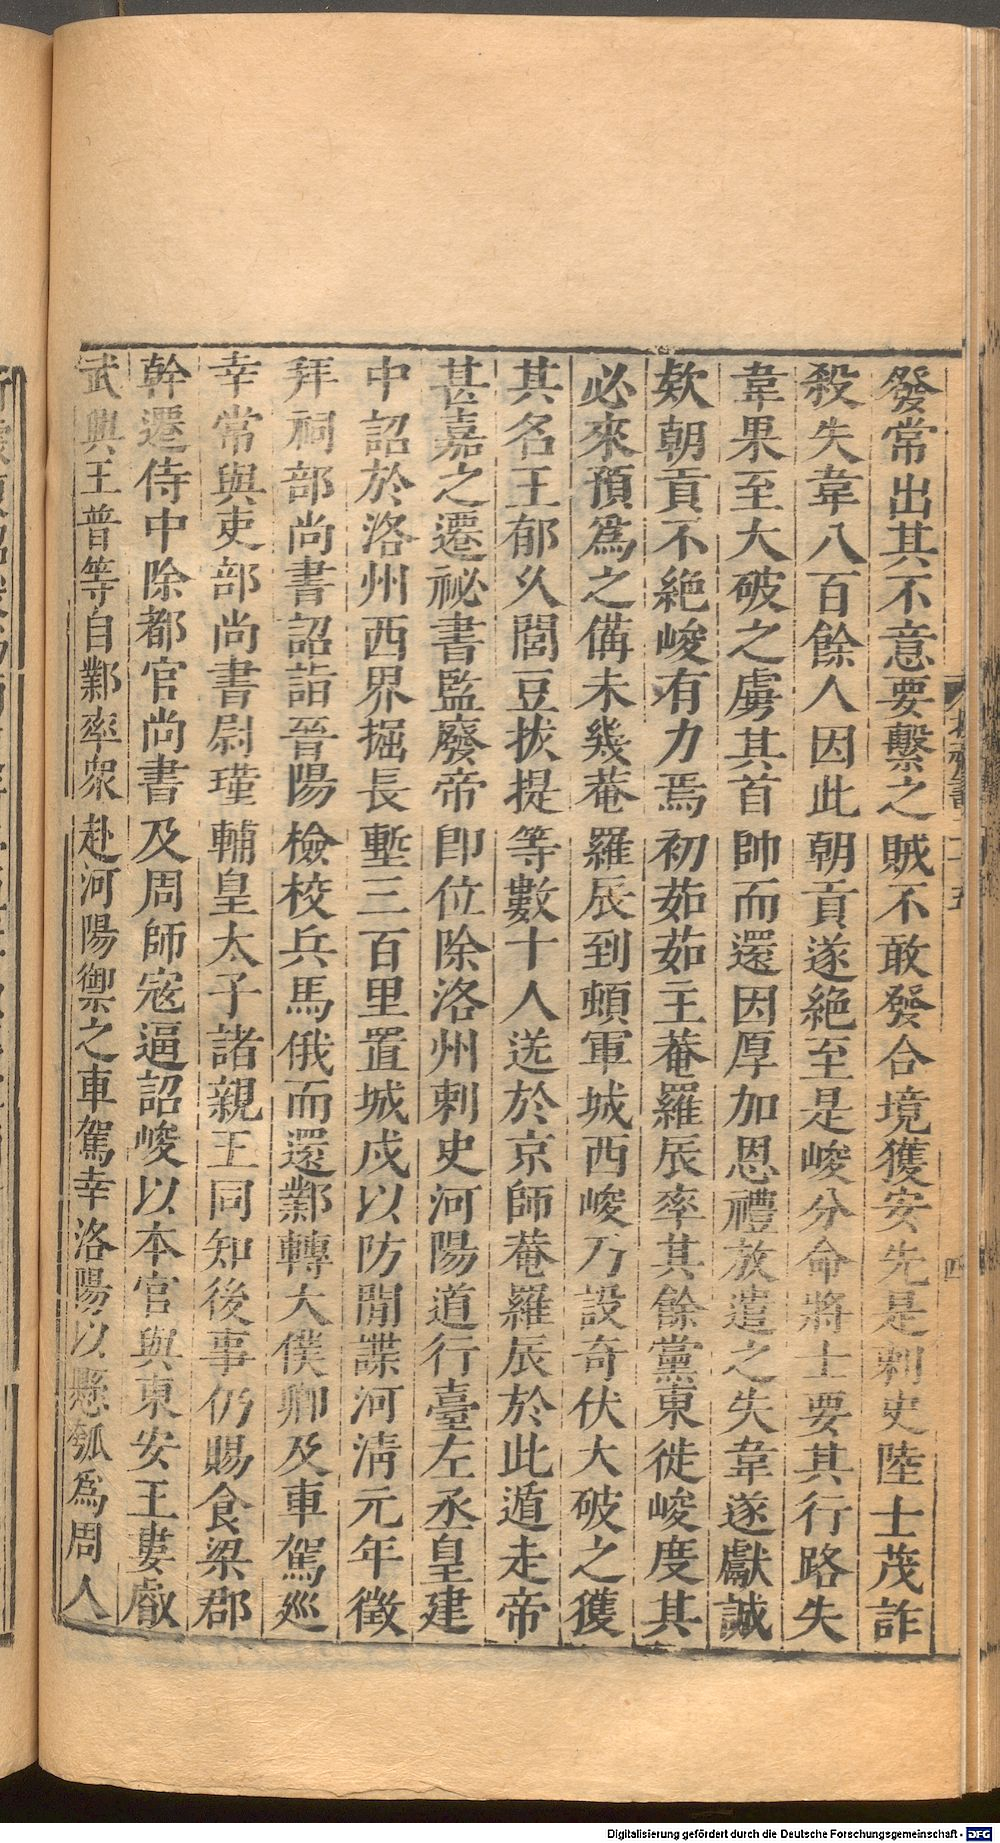 發常出其不意要繫之賊不敢發合境獲安先是刺史陸士茂詐
殺失韋八百餘人因此朝貢遂絶至是峻分命將士要其行路失
韋果至大破之虜其首帥而還因厚加恩禮放遣之失韋遂獻誠
欵朝貢不絶峻有力焉初茹茹主菴羅辰率其餘黨東徙峻度其
必來預爲之備未幾菴羅辰到頓軍城西峻乃設奇伏大破之獲
其名王郁久閭豆拔提等數十人送於京師菴羅辰於此遁走帝
甚嘉之遷祕書監廢帝即位除洛州刺史河陽道行臺左丞皇建
中詔於洛州西界掘長塹三百里置城戍以防間諜河清元年徵
拜祠部尚書詔詣晉陽檢校兵馬俄而還鄴轉大僕卿及車駕巡
幸常與吏部尚書尉瑾輔皇太子諸親王同知後事仍賜食梁郡
幹遷侍中除都官尚書及周師寇逼詔峻以本官與東安王婁叡
武興王普等自鄴率衆赴河陽禦之車駕幸洛陽以懸瓠爲周人
Digitalisierung gefördert durch die Deutsche Forschungsgemeinschaft - DFG